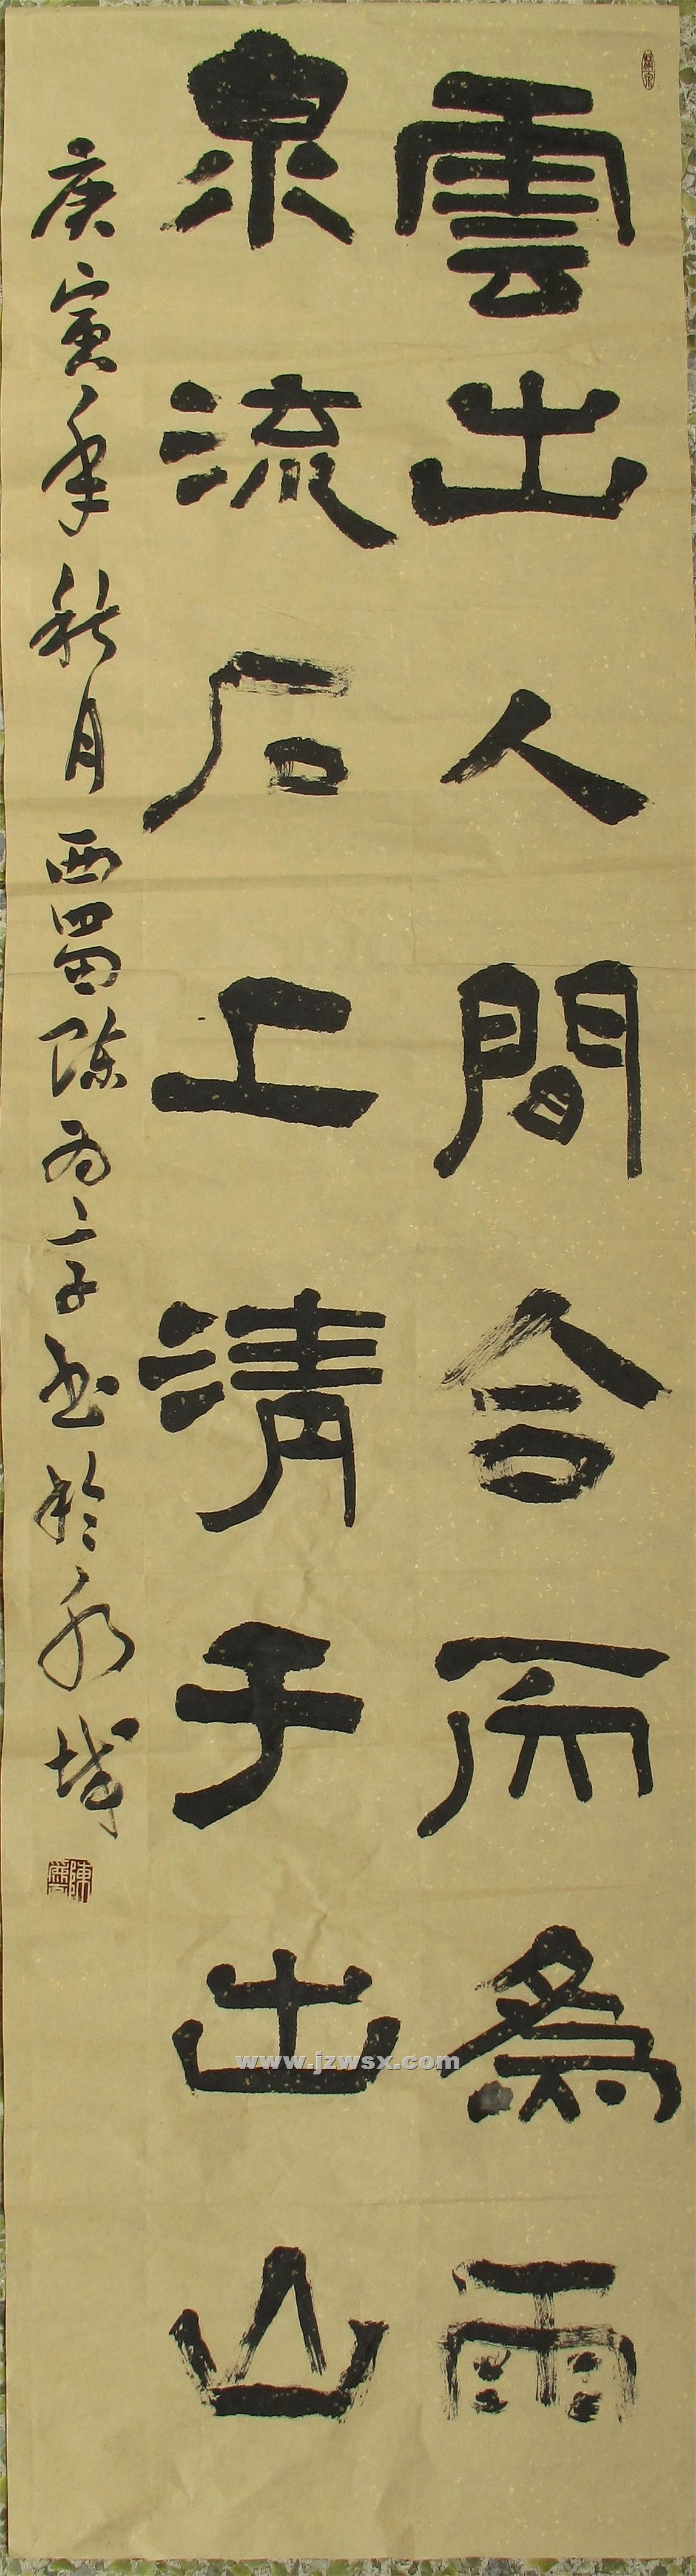 雲出人間合而為雨
泉流石上清于出山
庚寅年秋月西蜀陈為二子书於水城
www.jzwsx.com